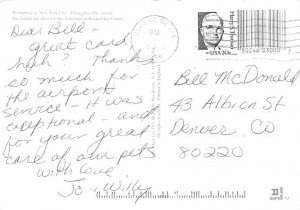 Dear Bill -
great card,
huh? Thanks
so much for
the airport
service - it was
exceptional - and
for your great
care of our pets
with love
Jo - Willy
Bill McDonald
43 Albion St
Denver, CO
80220
PM
Harry S. Truman
USA 20c
80244005000